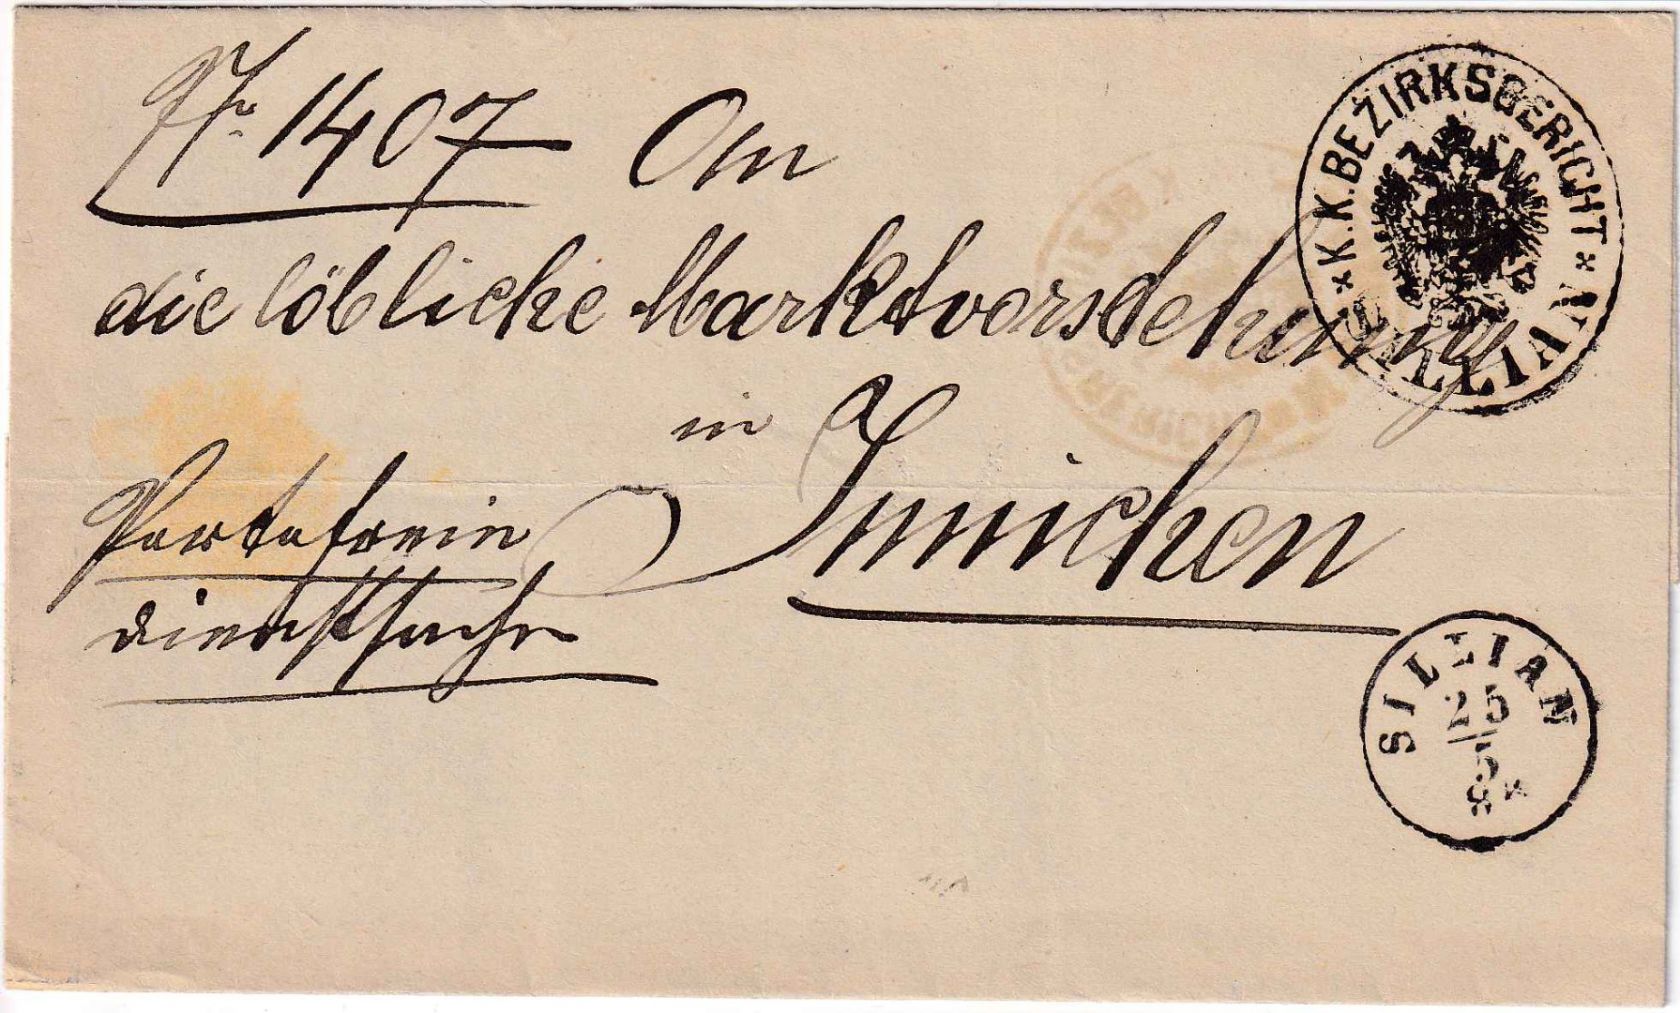 Nr. 1407 An
die löbliche Marktvorstehung
in
Innichen
Portofreie
Dienstsache
* K.K. BEZIRKSGERICHT * SILLIAN
SILLIAN
25
5